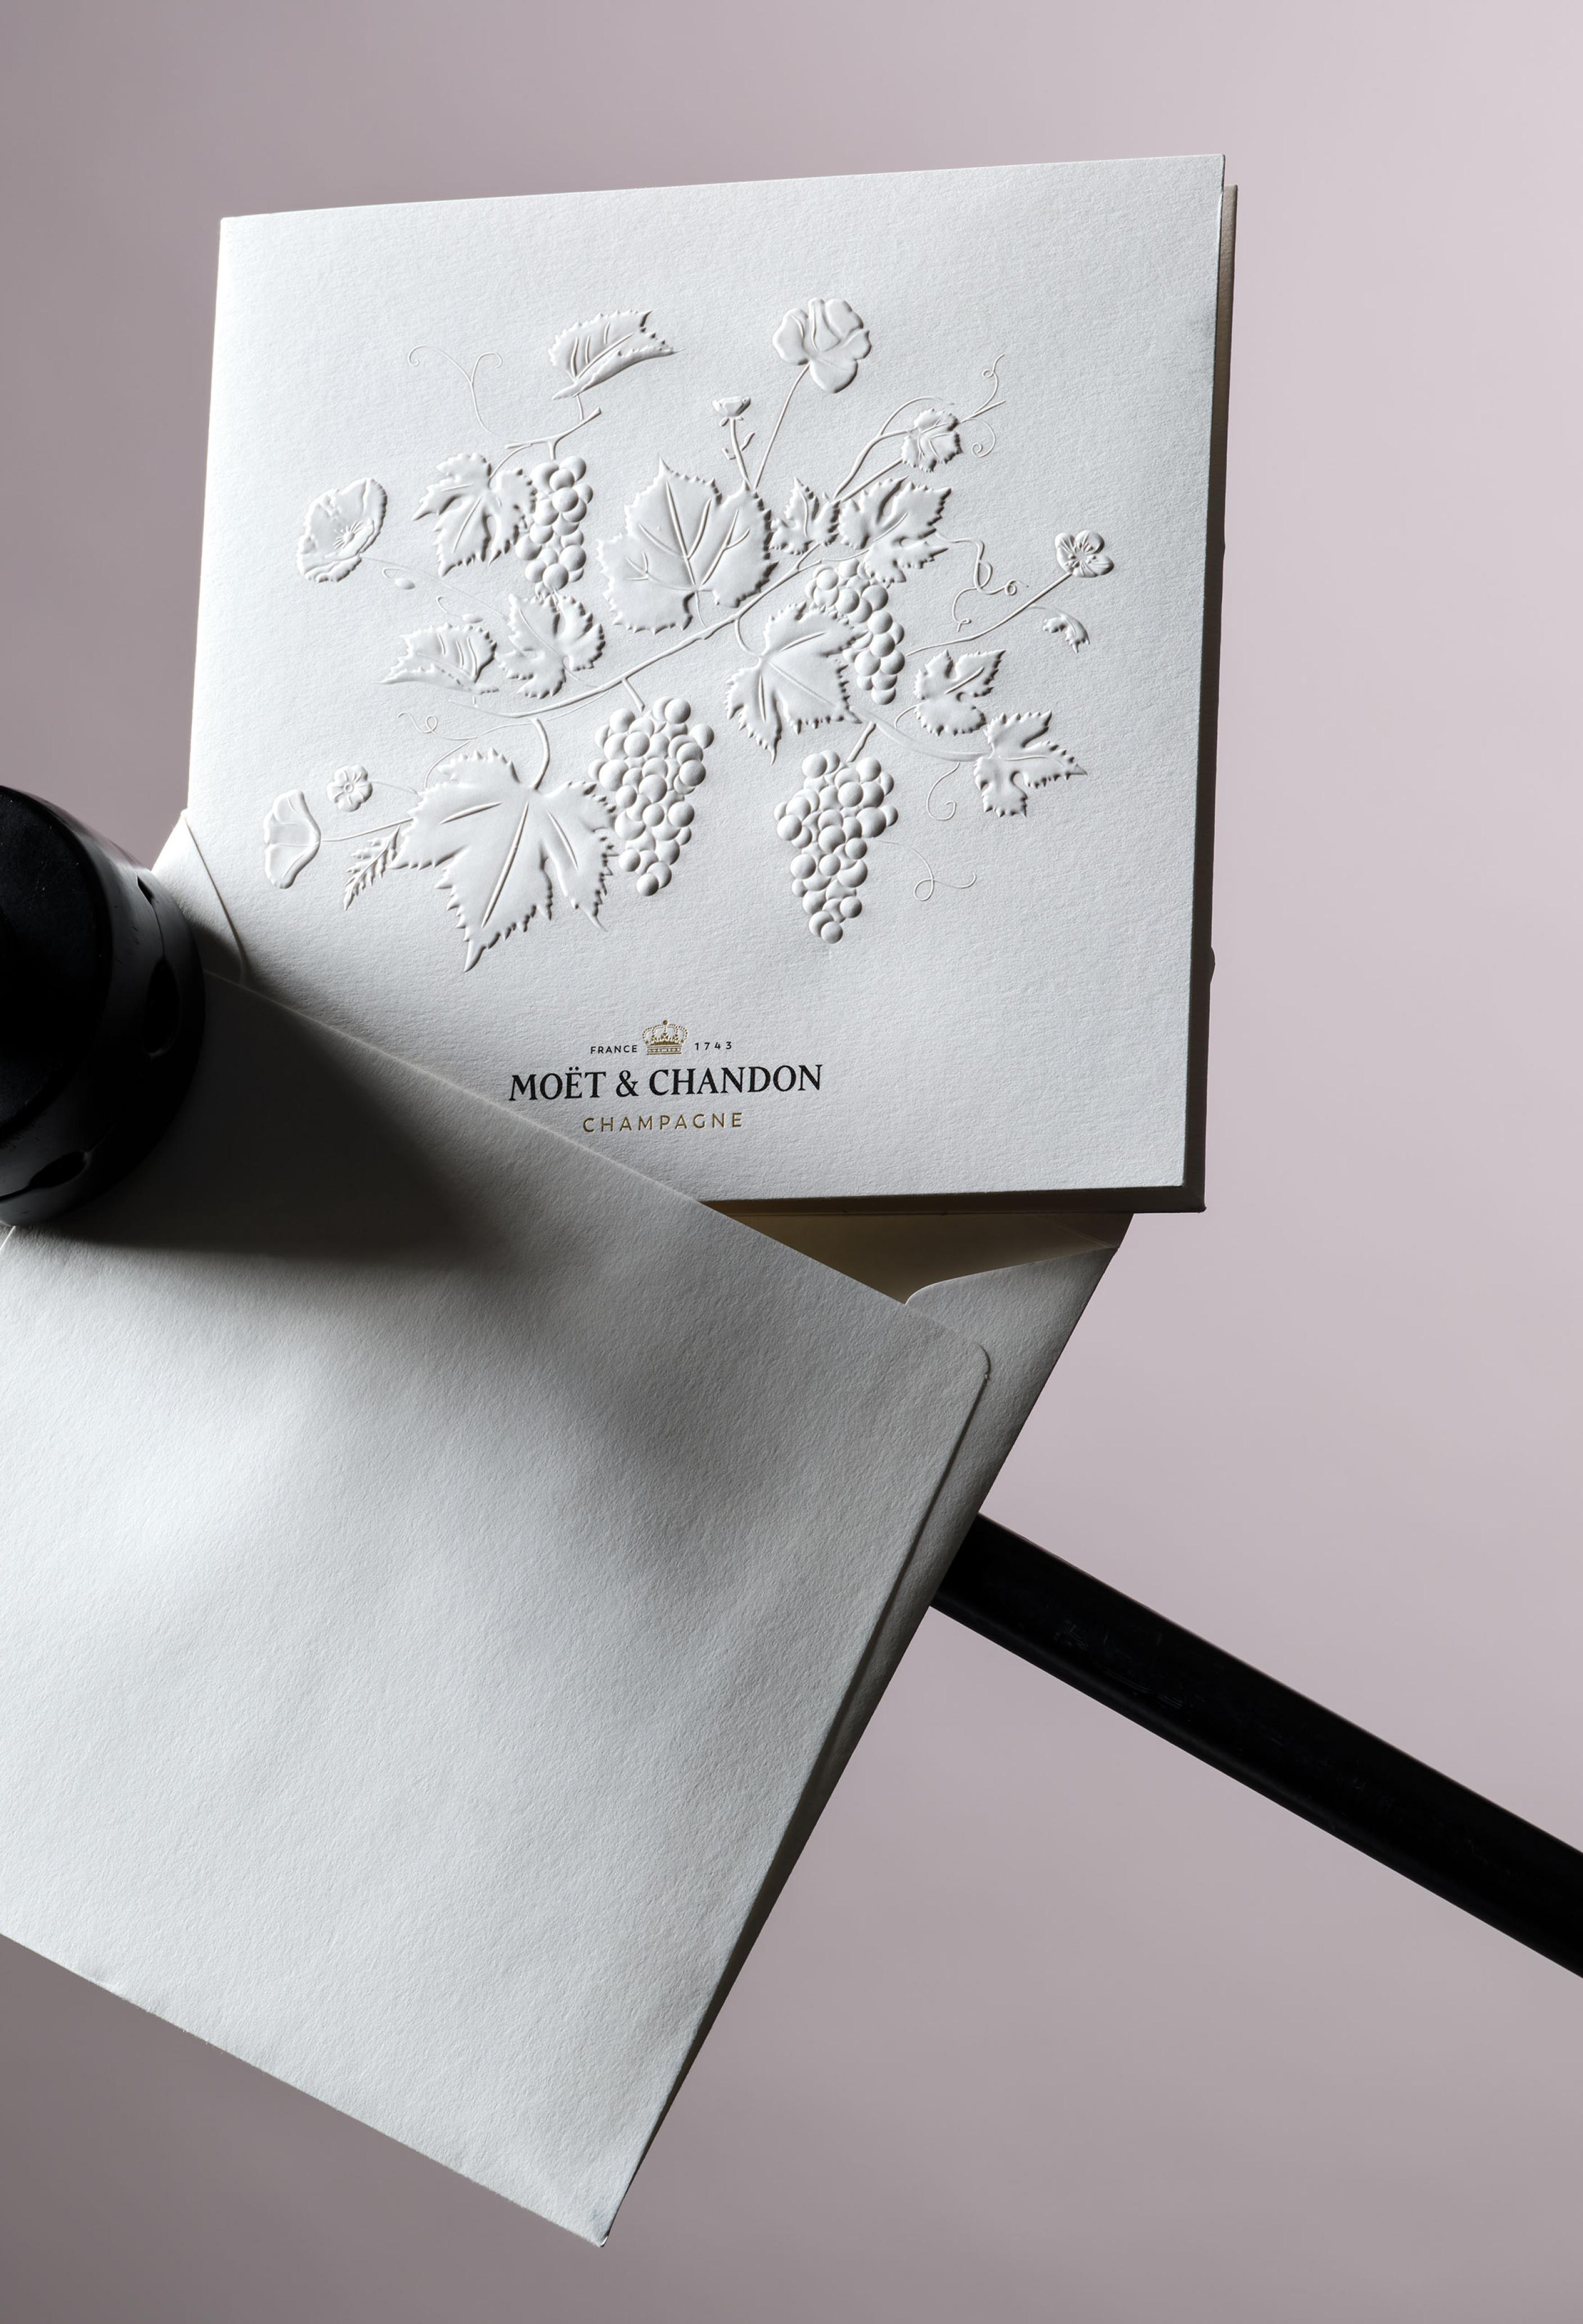 FRANCE 1743
MOËT & CHANDON
CHAMPAGNE